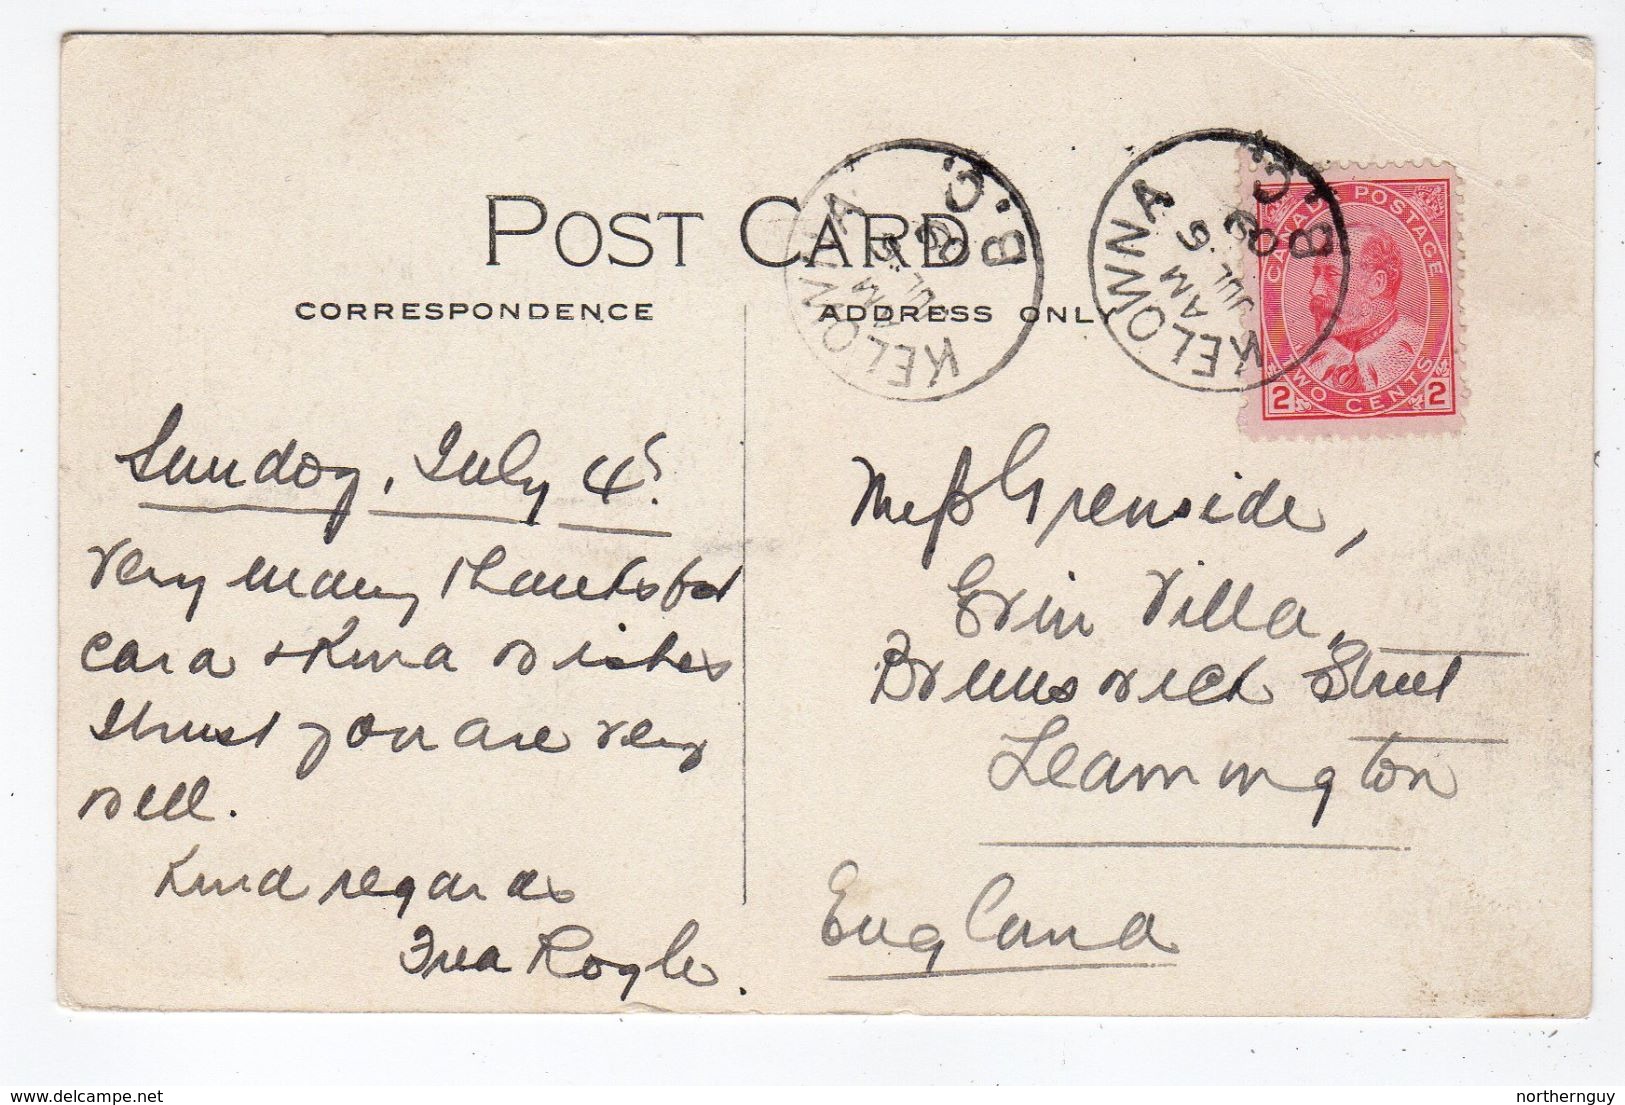 POST CARD
CORRESPONDENCE
ADDRESS ONLY
KELOWNA
B.C.
AM
JUL 5
09
KELOWNA
B.C.
AM
JUL 5
09
CANADA POSTAGE
2 TWO CENTS 2
Sunday, July 4th
Very many thanks for
card & kind wishes
I trust you are very
well.
Kind regards
Fred Rogle
Greenside,
Erin Villa,
Brunswick Street
Leamington
England
northernguy